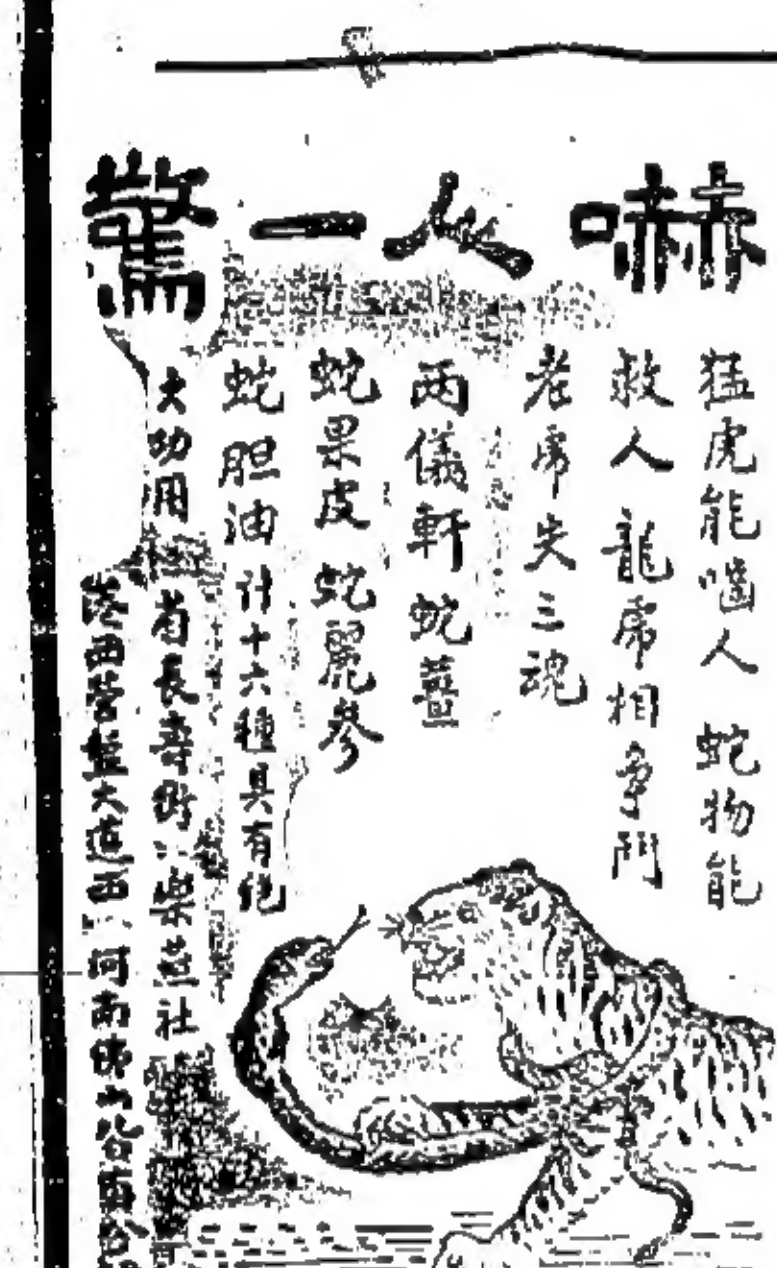 嚇人一驚
猛虎能噬人 蛇物能
救人 龍虎相爭鬥
老虎失三魂
兩儀軒 蛇薑
蛇果皮 蛇麗參
蛇胆油 計十六種具有絕
大功用 省長壽街 社
大道西 河南佛山